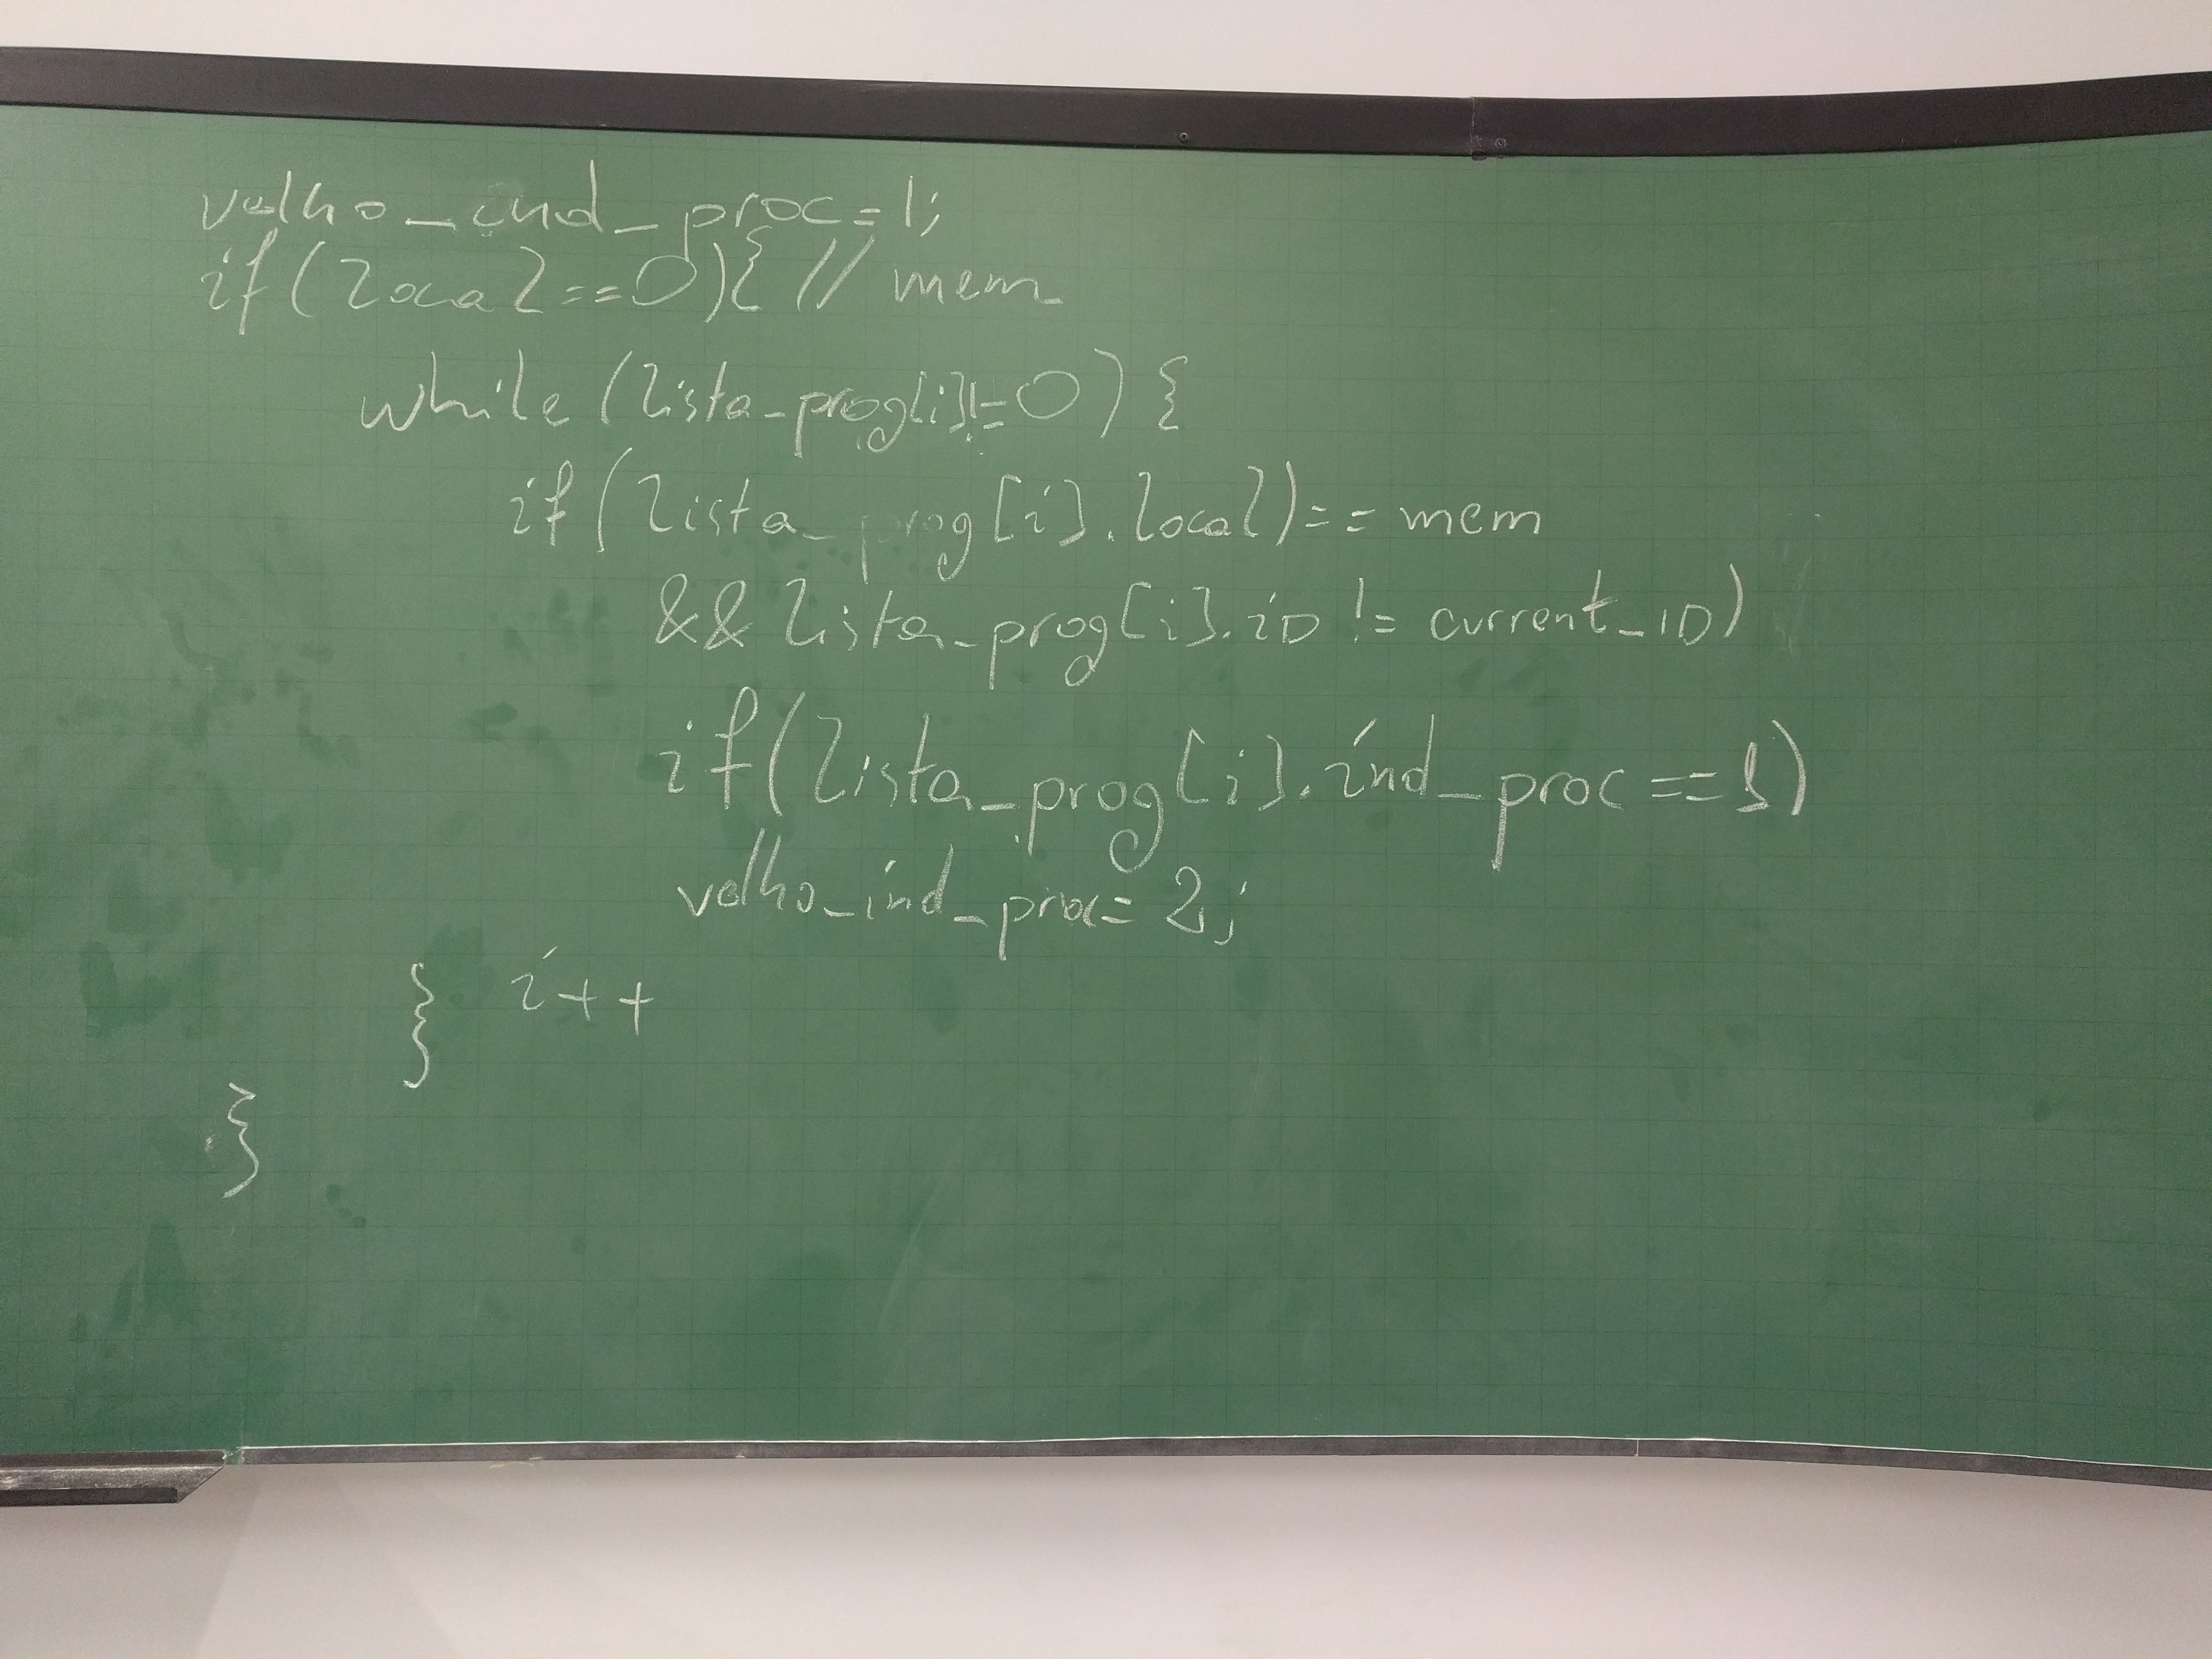 velho_ind_proc=1;
if(local==0){ // mem
while(lista_prog[i]!=0) {
if(lista_prog[i].local)== mem
&& lista_prog[i].iD != current_ID)
if(lista_prog[i].ind_proc == 1)
velho_ind_proc= 2;
} i++
}